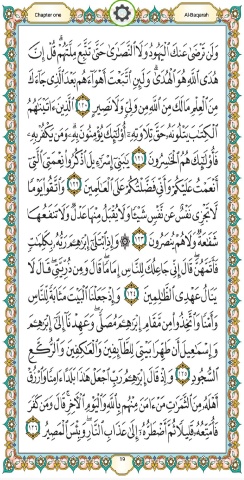 Chapter one Al-Baqarah
وَلَن تَرْضَىٰ عَنكَ ٱلْيَهُودُ وَلَا ٱلنَّصَـٰرَىٰ حَتَّىٰ تَتَّبِعَ مِلَّتَهُمْ ۗ قُلْ إِنَّ
هُدَى ٱللَّهِ هُوَ ٱلْهُدَىٰ ۗ وَلَئِنِ ٱتَّبَعْتَ أَهْوَآءَهُم بَعْدَ ٱلَّذِى جَآءَكَ
مِنَ ٱلْعِلْمِ ۙ مَا لَكَ مِنَ ٱللَّهِ مِن وَلِىٍّ وَلَا نَصِيرٍ ١٢٠ ٱلَّذِينَ ءَاتَيْنَـٰهُمُ
ٱلْكِتَـٰبَ يَتْلُونَهُۥ حَقَّ تِلَاوَتِهِۦٓ أُو۟لَـٰٓئِكَ يُؤْمِنُونَ بِهِۦ ۗ وَمَن يَكْفُرْ بِهِۦ
فَأُو۟لَـٰٓئِكَ هُمُ ٱلْخَـٰسِرُونَ ١٢١ يَـٰبَنِىٓ إِسْرَٰٓءِيلَ ٱذْكُرُوا۟ نِعْمَتِىَ ٱلَّتِىٓ
أَنْعَمْتُ عَلَيْكُمْ وَأَنِّى فَضَّلْتُكُمْ عَلَى ٱلْعَـٰلَمِينَ ١٢٢ وَٱتَّقُوا۟ يَوْمًا
لَّا تَجْزِى نَفْسٌ عَن نَّفْسٍ شَيْـًٔا وَلَا يُقْبَلُ مِنْهَا عَدْلٌ وَلَا تَنفَعُهَا
شَفَـٰعَةٌ وَلَا هُمْ يُنصَرُونَ ١٢٣ ۞ وَإِذِ ٱبْتَلَىٰٓ إِبْرَٰهِـۧمَ رَبُّهُۥ بِكَلِمَـٰتٍ
فَأَتَمَّهُنَّ ۖ قَالَ إِنِّى جَاعِلُكَ لِلنَّاسِ إِمَامًا ۖ قَالَ وَمِن ذُرِّيَّتِى ۖ قَالَ لَا
يَنَالُ عَهْدِى ٱلظَّـٰلِمِينَ ١٢٤ وَإِذْ جَعَلْنَا ٱلْبَيْتَ مَثَابَةً لِّلنَّاسِ
وَأَمْنًا وَٱتَّخِذُوا۟ مِن مَّقَامِ إِبْرَٰهِـۧمَ مُصَلًّى ۖ وَعَهِدْنَآ إِلَىٰٓ إِبْرَٰهِـۧمَ
وَإِسْمَـٰعِيلَ أَن طَهِّرَا بَيْتِىَ لِلطَّآئِفِينَ وَٱلْعَـٰكِفِينَ وَٱلرُّكَّعِ
ٱلسُّجُودِ ١٢٥ وَإِذْ قَالَ إِبْرَٰهِـۧمُ رَبِّ ٱجْعَلْ هَـٰذَا بَلَدًا ءَامِنًا وَٱرْزُقْ
أَهْلَهُۥ مِنَ ٱلثَّمَرَٰتِ مَنْ ءَامَنَ مِنْهُم بِٱللَّهِ وَٱلْيَوْمِ ٱلْـَٔاخِرِ ۖ قَالَ وَمَن كَفَرَ
فَأُمَتِّعُهُۥ قَلِيلًا ثُمَّ أَضْطَرُّهُۥٓ إِلَىٰ عَذَابِ ٱلنَّارِ ۖ وَبِئْسَ ٱلْمَصِيرُ ١٢٦
19